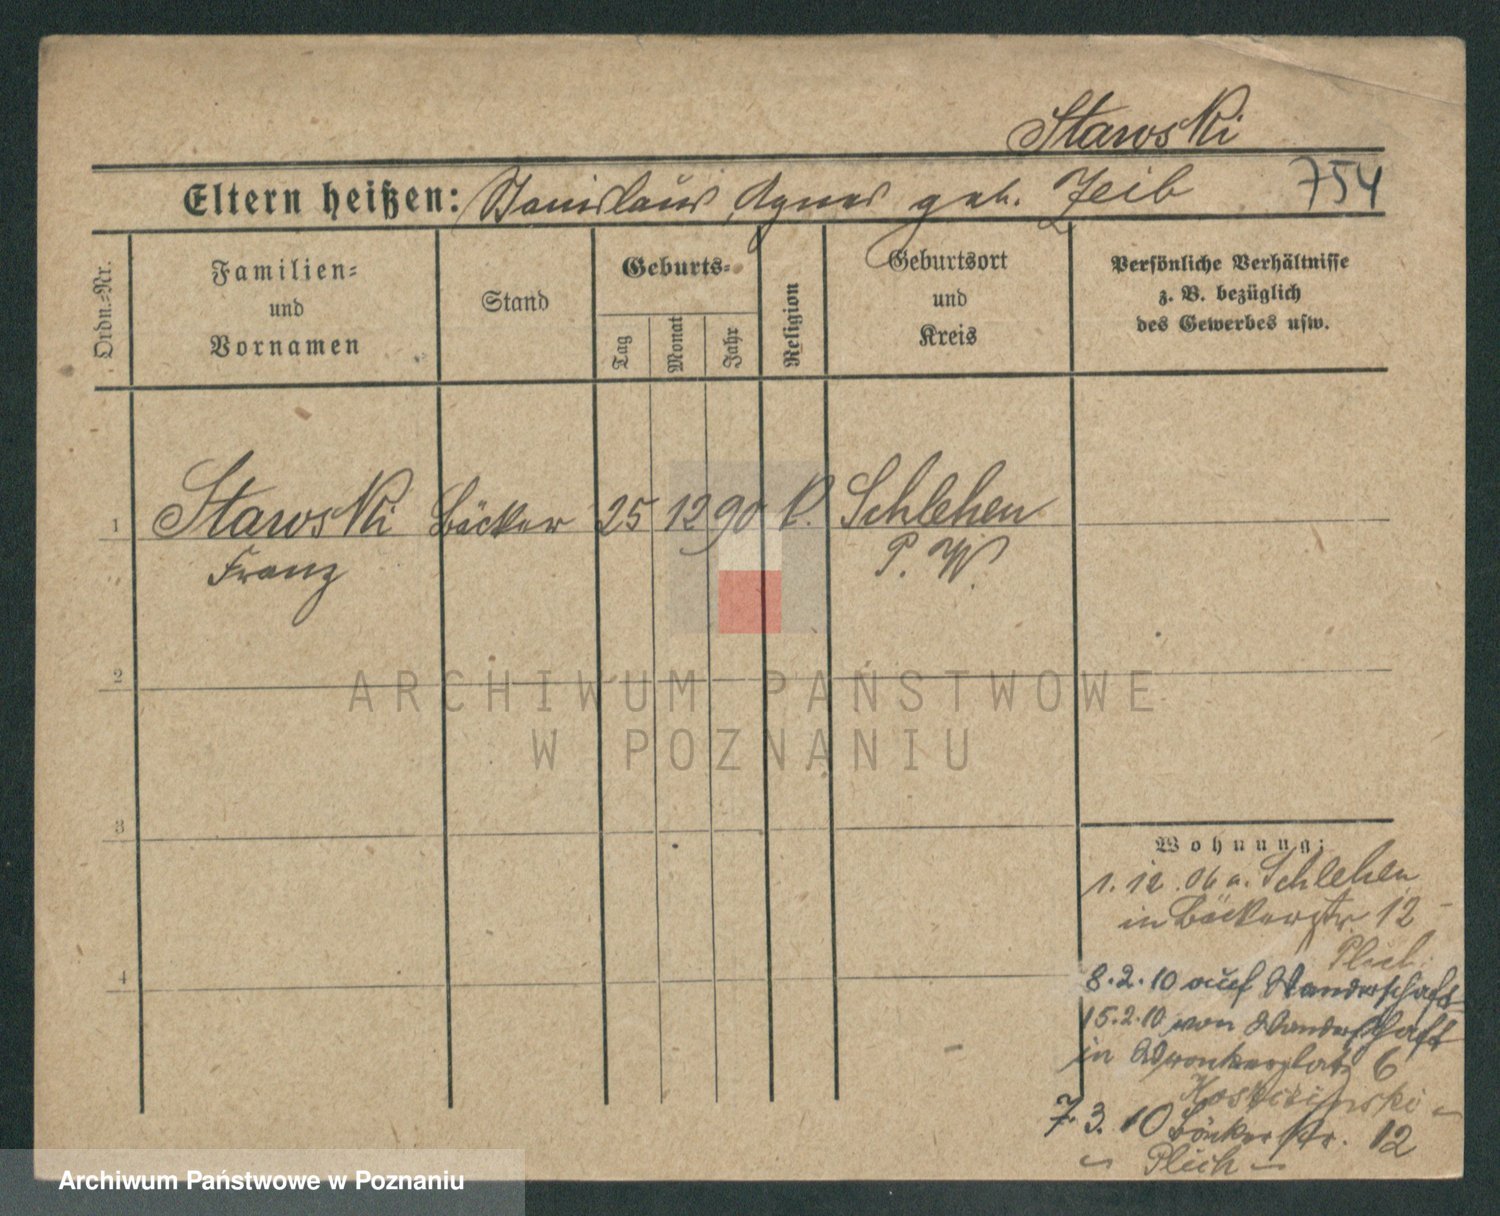 Stawski
Eltern heißen: Stanislaus, Agnes geb. Zeib 754
Ordn.-Nr.
Familien-
und
Vornamen
Stand
Geburts-
Tag
Monat
Jahr
Religion
Geburtsort
und
Kreis
Persönliche Verhältnisse
z. B. bezüglich
des Gewerbes usw.
1 Stawski Bäcker 25 12 90 k. Schlehen
Franz P. W.
2
ARCHIWUM PAŃSTWOWE
W POZNANIU
3
Wohnung:
1. 12. 06 a. Schlehen
in Bäckerstr. 12
Plich
4
8.2.10 auf Wanderschaft
15.2.10 von Wanderschaft
in Wronkerplatz 6
7.3.10 Bäckerstr. 12
Plich
Archiwum Państwowe w Poznaniu